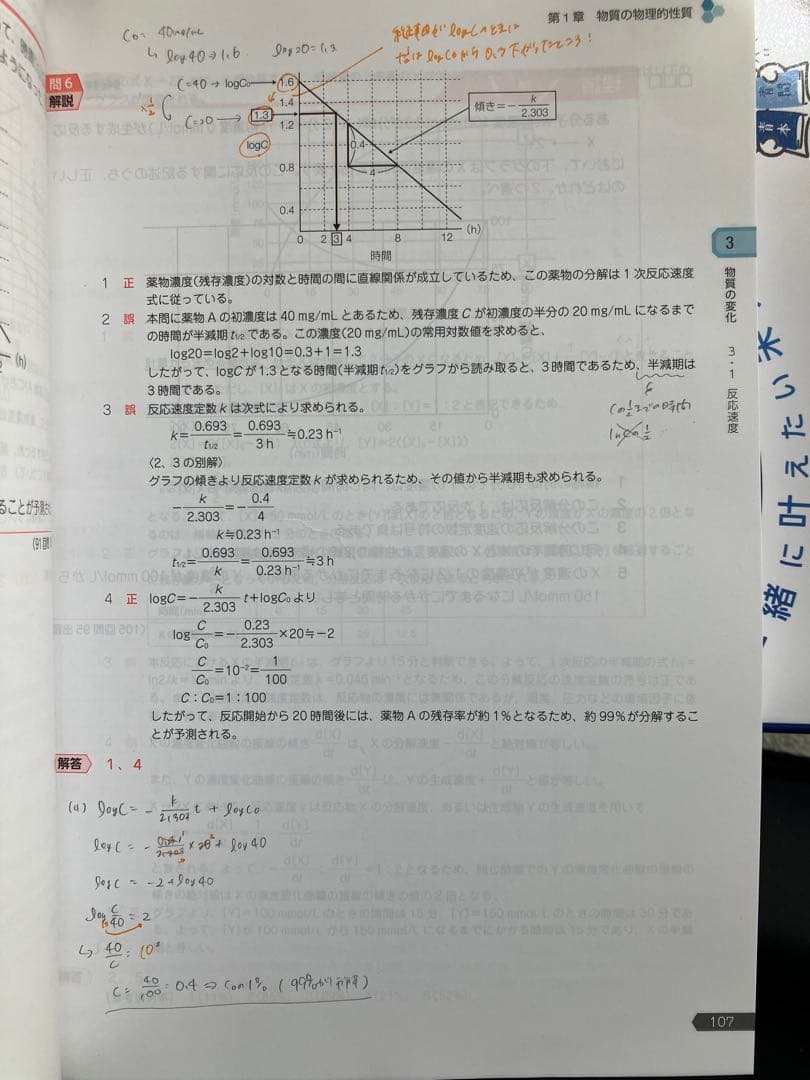 第1章 物質の物理的性質
C₀ = 40mg/mL
↳ log40→1.6 log20=1.3
問6
解説
C=40→logC₀
C=20→
×1/2
1.6
1.4
1.3
1.2
logC
0.8
0.4
0.4
4
傾き=－k/2.303
0 2 3 4 8 12 (h)
時間
1 正 薬物濃度(残存濃度)の対数と時間の間に直線関係が成立しているため、この薬物の分解は1次反応速度
式に従っている。
2 誤 本問に薬物Aの初濃度は40 mg/mLとあるため、残存濃度Cが初濃度の半分の20 mg/mLになるまで
の時間が半減期t1/2である。この濃度(20 mg/mL)の常用対数値を求めると、
log20=log2+log10=0.3+1=1.3
したがって、logCが1.3となる時間(半減期t1/2)をグラフから読み取ると、3時間であるため、半減期は
3時間である。
Cの1/2までの時間
3 誤 反応速度定数kは次式により求められる。
k=0.693/t1/2=0.693/3 h≒0.23 h⁻¹
〈2、3の別解〉
グラフの傾きより反応速度定数kが求められるため、その値から半減期も求められる。
－k/2.303=－0.4/4
k≒0.23 h⁻¹
t1/2=0.693/k=0.693/0.23 h⁻¹≒3 h
4 正 logC=－k/2.303 t+logC₀より
log C/C₀=－0.23/2.303×20≒－2
C/C₀=10⁻²=1/100
C：C₀=1：100
したがって、反応開始から20時間後には、薬物Aの残存率が約1%となるため、約99%が分解するこ
とが予測される。
解答 1、4
(4) logC = - k/2.303 t + logC₀
×20 + log40
logC = -2+log40
log C/40 = 2
↳ 40/C = 10²
C = 40/100 = 0.4 ⇒
3
物質の変化
3・1 反応速度
107
青本
一緒に叶えたい未